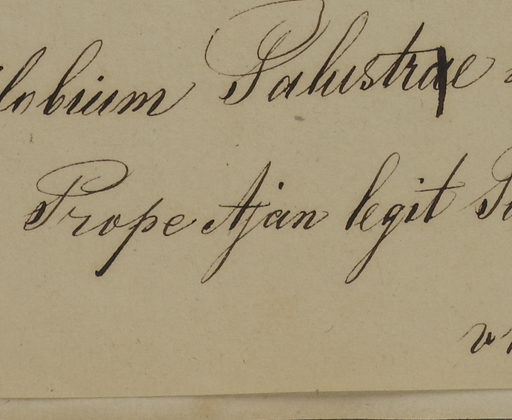 lobium Palustre
Prope Ajan legit